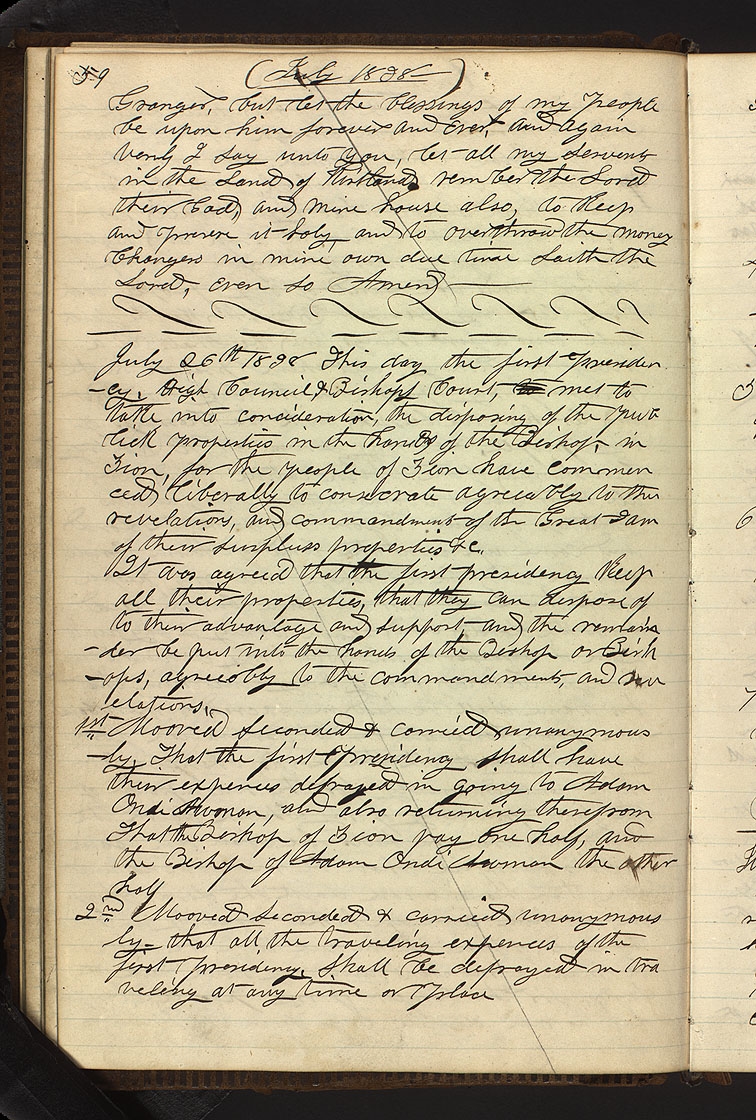 59
(July 1838)
Granger, but let the blessings of my People
be upon him forever and Ever, and again
verily I say unto you, let all my servents
in the Land of Kirtland remember the Lord
their God, and mine house also, to Keep
and preserve it holy, and to overthrow the money
Changers in mine own due time Saith the
Lord, Even so Amen
July 26th 1838 This day the first presiden
-cy, High Council & Bishops Court, met to
take into concideration, the disposing of the pub
lick properties in the hands of the Bishop, in
Zion, for the people of Zion have commen
ced liberally to consecrate agreeably to the
revelations, and commandments of the Great I am
of their surpluss properties &c.
It was agreed that the first presidency Keep
all their properties, that they can dispose of
to their advantage and support, and the remain
-der be put into the hands of the Bishop or Bish
-ops, agreeably to the commandments, and rev
elations,
1st Mooved Seconded & carried unanymous
-ly, That the first Presidency shall have
their expences defrayed in going to Adam
Ondi Awman, and also returning therefrom
That the Bishop of Zion pay one half, and
the Bishop of Adam Ondi Awman the other
half
2nd Mooved Seconded & carried unanymous
ly- that all the traveling expences of the
first presidency, shall be defrayed in tra
veling at any time or place